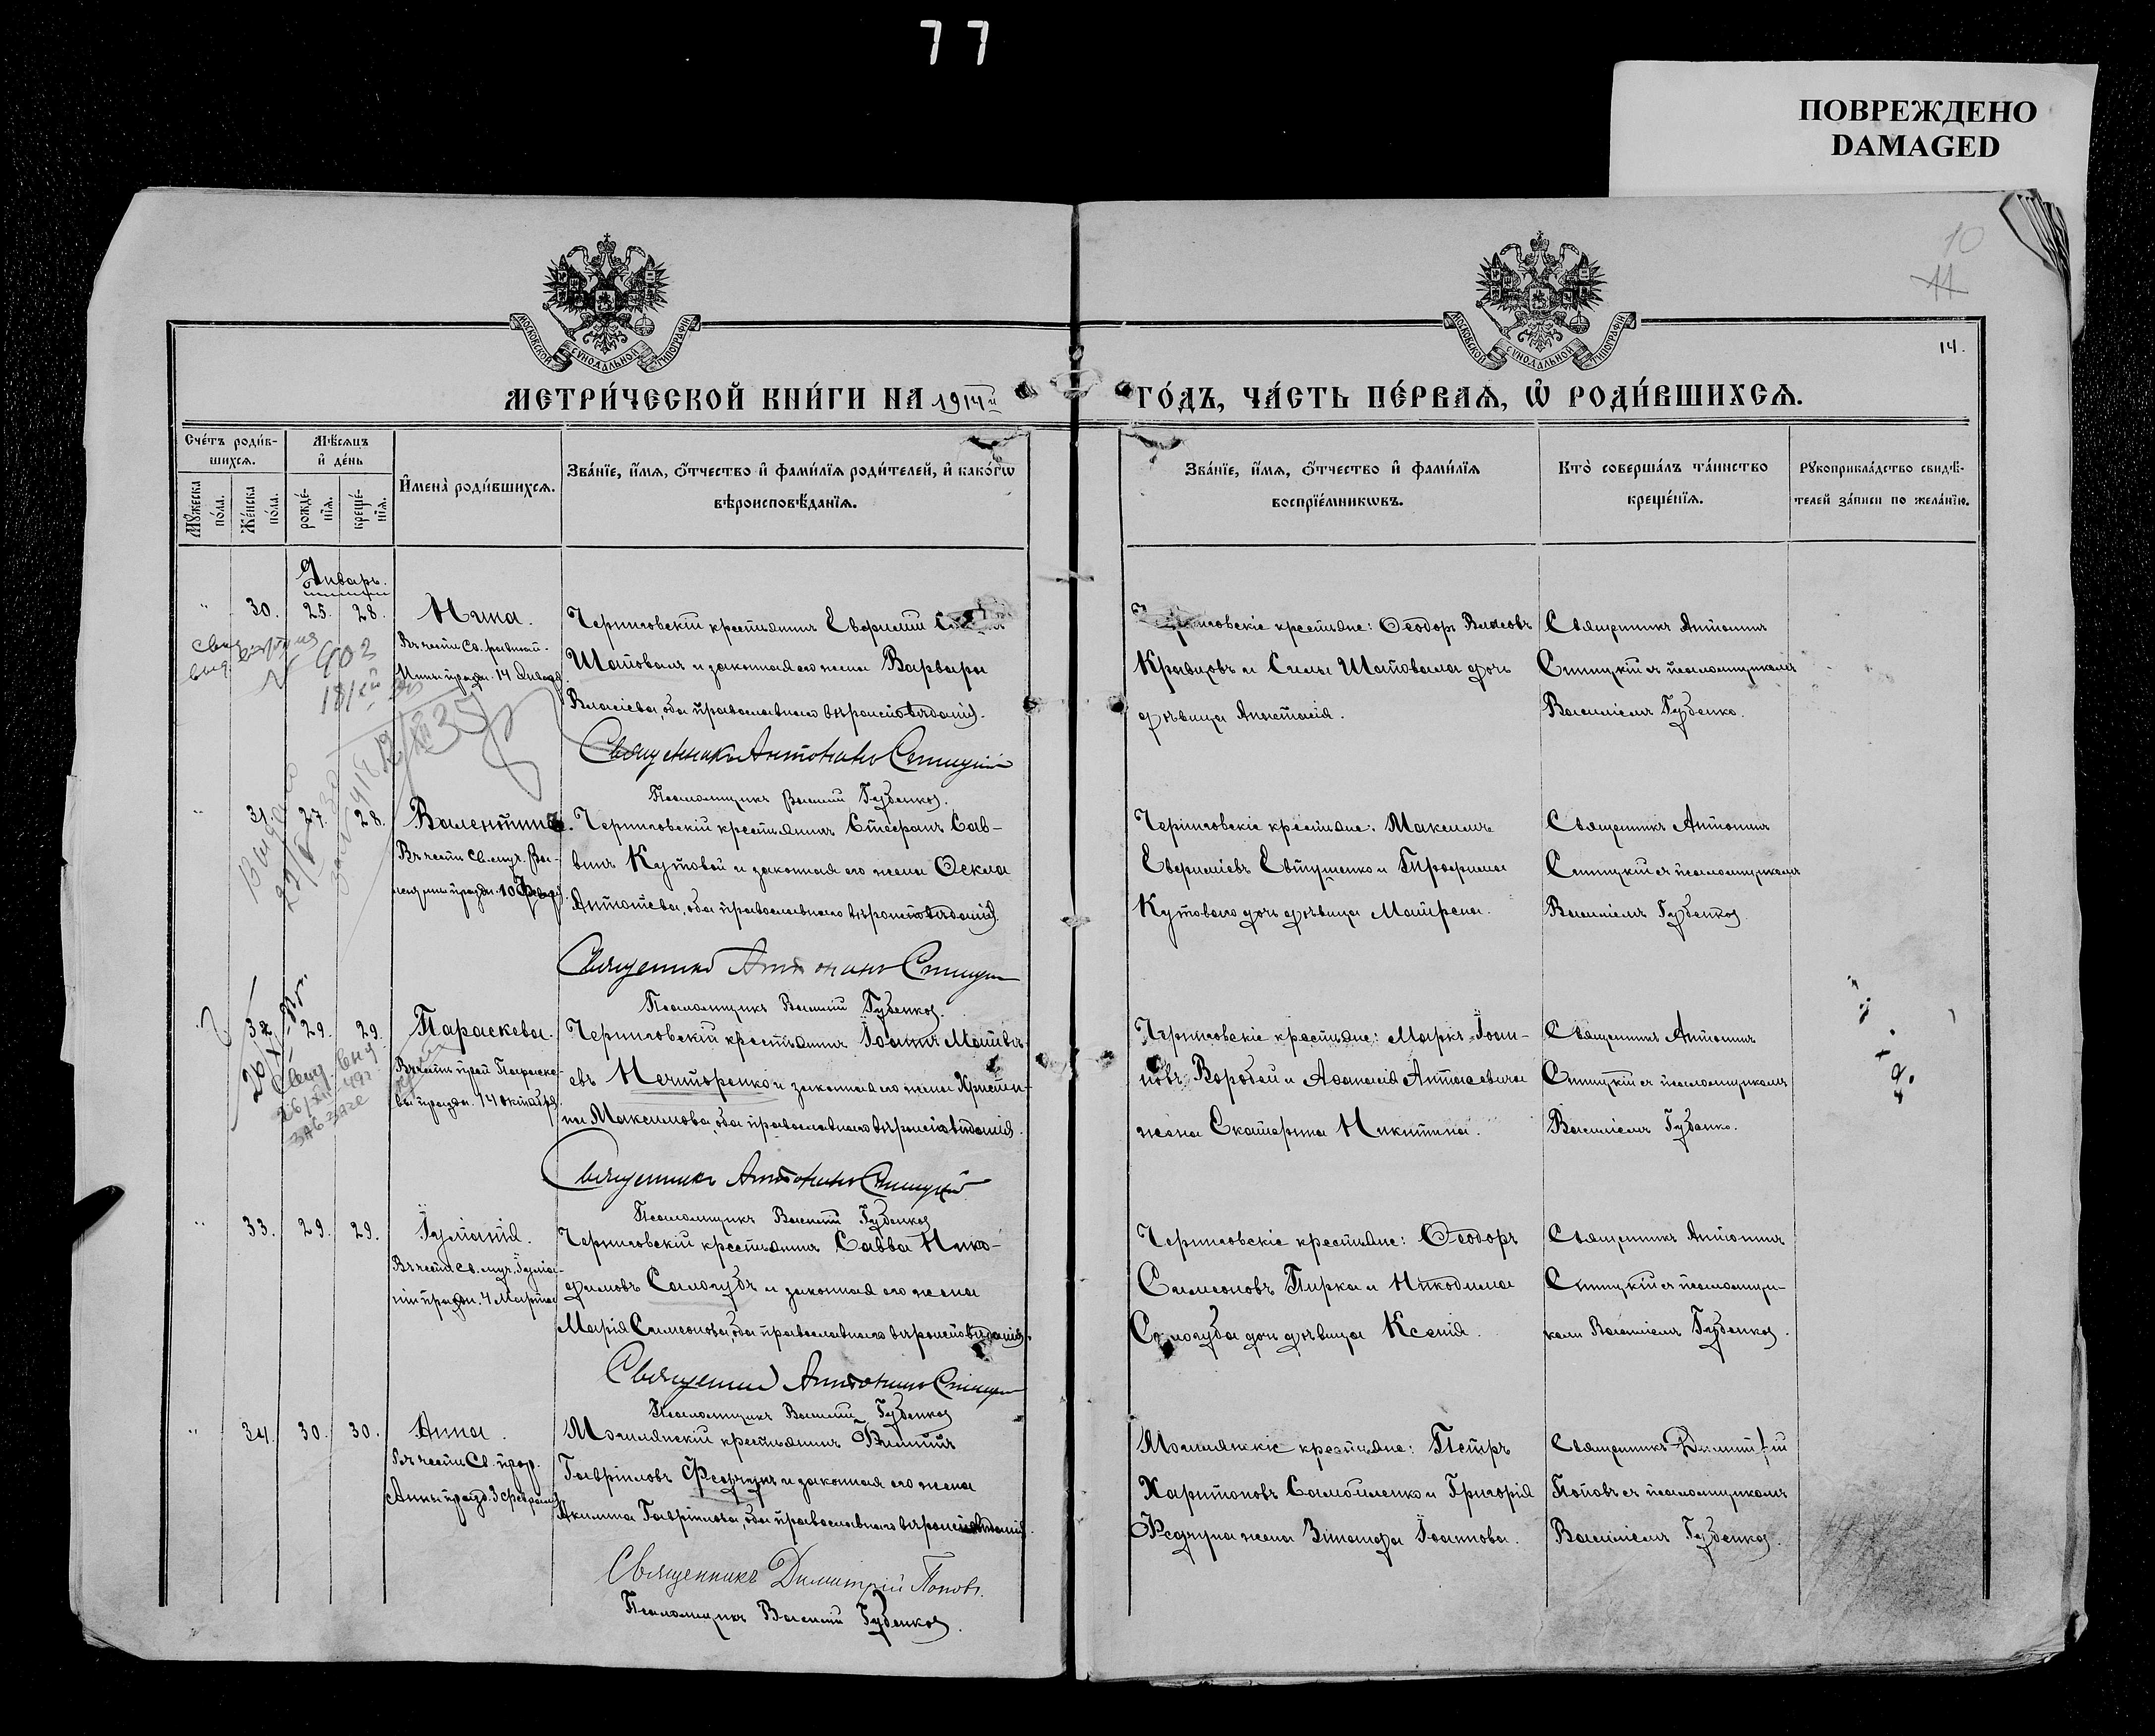 77
ПОВРЕЖДЕНО
DAMAGED
10
11
14.
МОСКОВСКОЙ СѴНОДАЛЬНОЙ ТИПОГРАФІИ
МОСКОВСКОЙ СѴНОДАЛЬНОЙ ТИПОГРАФІИ
МЕТРИ́ЧЕСКОЙ КНИ́ГИ НА 1914й
ГО́ДЪ, ЧА́СТЬ ПЕ́РВАЯ, Ѡ҆ РОДИ́ВШИХСЯ.
Сче́тъ роди́в-
шихся.
Мѣ́сяцъ
и҆ де́нь
Мꙋ́жеска
по́ла.
Же́нска
по́ла.
рожде́-
нїя.
креще́-
нїя.
И҆мена̀ роди́вшихся.
Зва́нїе, и҆́мя, ѻ҆́тчество и҆ фами́лїя роди́телей, и҆ како́гѡ
вѣроисповѣ́данїя.
Зва́нїе, и҆́мя, ѻ҆́тчество и҆ фами́лїя
воспрїе́мникѡвъ.
Кто̀ соверша́лъ та́инство
креще́нїя.
Рꙋкоприкла́дство свидѣ́-
телей за́писи по жела́нїю.
Январь.
30. 25. 28. Нина.
Въ честь Св. равноап.
Нины празд. 14 Января
Черниговскій крестьянинъ Евфимій
Шаповалъ и законная его жена Варвара
Власіева, оба православнаго вѣроисповѣданія.
Священникъ Антонинъ Спицкій
Псаломщикъ Василій Губенко.
крестьяне: Ѳеодоръ Власовъ
Кравцовъ и Силы Шаповала дочь
дѣвица Анастасія.
Священникъ Антонинъ
Спицкій съ псаломщикомъ
Василіемъ Губенко.
N 902
31. 27. 28. Валентина.
Въ честь Св. муч. Ва-
лентины празд. 10 Февр.
Черниговскій крестьянинъ Стефанъ Сав-
винъ Кутовой и законная его жена Ѳекла
Антониева, оба православнаго вѣроисповѣданія.
Священникъ Антонинъ Спицкій
Псаломщикъ Василій Губенко.
Черниговскіе крестьяне: Максимъ
Евфиміевъ Евтушенко и Трофима
Кутового дочь дѣвица Матрена.
Священникъ Антонинъ
Спицкій съ псаломщикомъ
Василіемъ Губенко.
32. 29. 29. Параскева.
Въ честь преп. Параске-
вы празд. 14 октября.
Черниговскій крестьянинъ Іоаннъ Матвѣ-
евъ Нечипоренко и законная его жена Христи-
на Максимова, оба православнаго вѣроисповѣданія.
Священникъ Антонинъ Спицкій
Псаломщикъ Василій Губенко
Черниговскіе крестьяне: Маркъ Іоан-
новъ Воробей и Аѳанасія Антонаевича
жена Екатерина Никитина.
Священникъ Антонинъ
Спицкій съ псаломщикомъ
Василіемъ Губенко.
33. 29. 29. Іуліанія.
Въ честь Св. муч. Іуліа-
ніи празд. 4 Марта
Черниговскій крестьянинъ Савва Нико-
димовъ Сологубъ и законная его жена
Марія Симеонова, оба православнаго вѣроисповѣданія.
Священникъ Антонинъ Спицкій
Псаломщикъ Василій Губенко
Черниговскіе крестьяне: Ѳеодоръ
Симеоновъ Пирка и Никодима
Сологуба дочь дѣвица Ксенія.
Священникъ Антонинъ
Спицкій съ псаломщи-
комъ Василіемъ Губенко.
34. 30. 30. Анна.
Въ честь Св. прор.
Анны празд. 3 февраля
Могилянскій крестьянинъ Филиппъ
Гавріиловъ Федчунъ и законная его жена
Акилина Гавріилова, оба православнаго вѣроисповѣданія.
Священникъ Димитрій Поповъ.
Псаломщикъ Василій Губенко.
Могилянскіе крестьяне: Петръ
Харитоновъ Самойленко и Григорія
Федчуна жена Зинаида Іоаннова.
Священникъ Димитрій
Поповъ съ псаломщикомъ
Василіемъ Губенко.